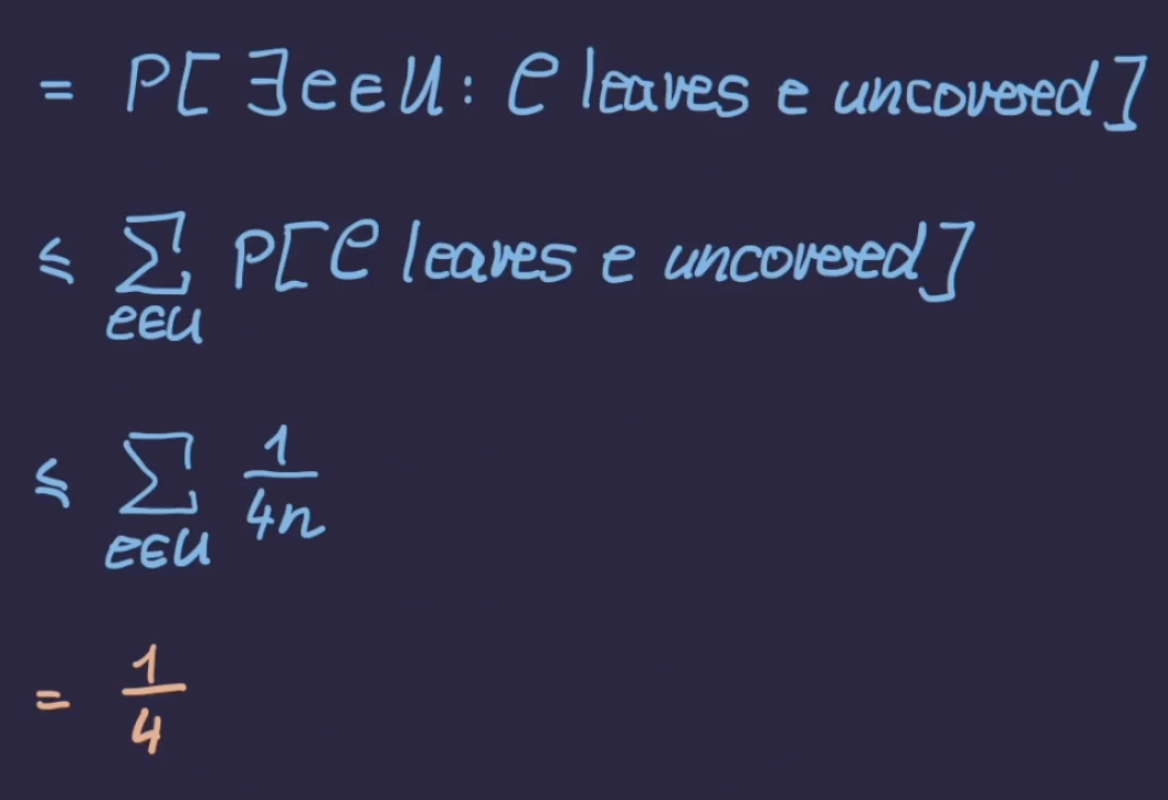 = P[ ∃e∈U: C leaves e uncovered]
≤ ∑ P[C leaves e uncovered]
e∈U
≤ ∑ 1/4n
e∈U
= 1/4